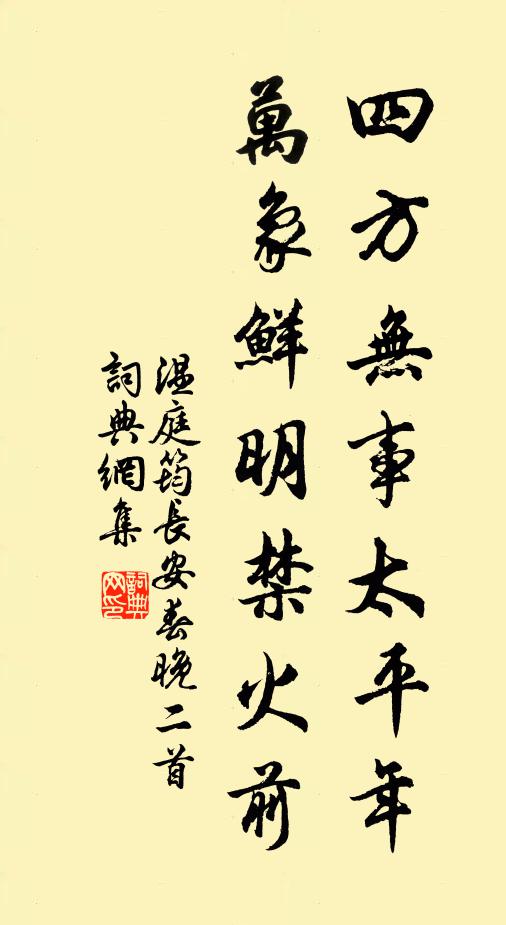 四方無事太平年
萬象鮮明禁火前
温庭筠長安春晚二首
詞典網集
詞典网印